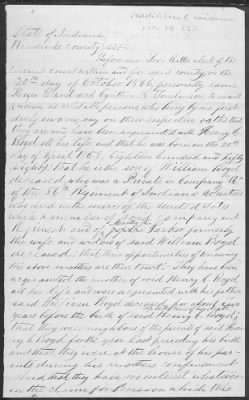 Additional evidence
State of Indiana
Hendricks county SS
Before me Levi Ritter clerk of the
circuit court within and for said county, on the
20th day of October 1866, personally came
and Cynthia
known as reliable persons who being by me first
duly sworn, say on their respective oaths that
they are and have been acquainted with Henry C.
Boyd all his life and that he was born on the 20th
day of April 1858, Eighteen hundred and fifty
eight, that he is the son of William Boyd
deceased, who was a Private in Company
of the Regiment of Indiana Volunteers
who died in the service of the United States
while a member of said company and
Regiment and of Parker formerly
the wife and widow of said William Boyd
deceased. That their opportunities of knowing
the above matters are that They have been
acquainted with the mother of said Henry C. Boyd
all her life and were acquainted with his father
said William Boyd deceased for about four
years before the birth of said Henry C. Boyd,
that they were neighbors of the parents of said Hen-
ry C. Boyd for the year last preceding his birth
and that they were at the house of his par-
ents during his mother's confinement
And that they have no interest whatever
in the claim for Pension which this